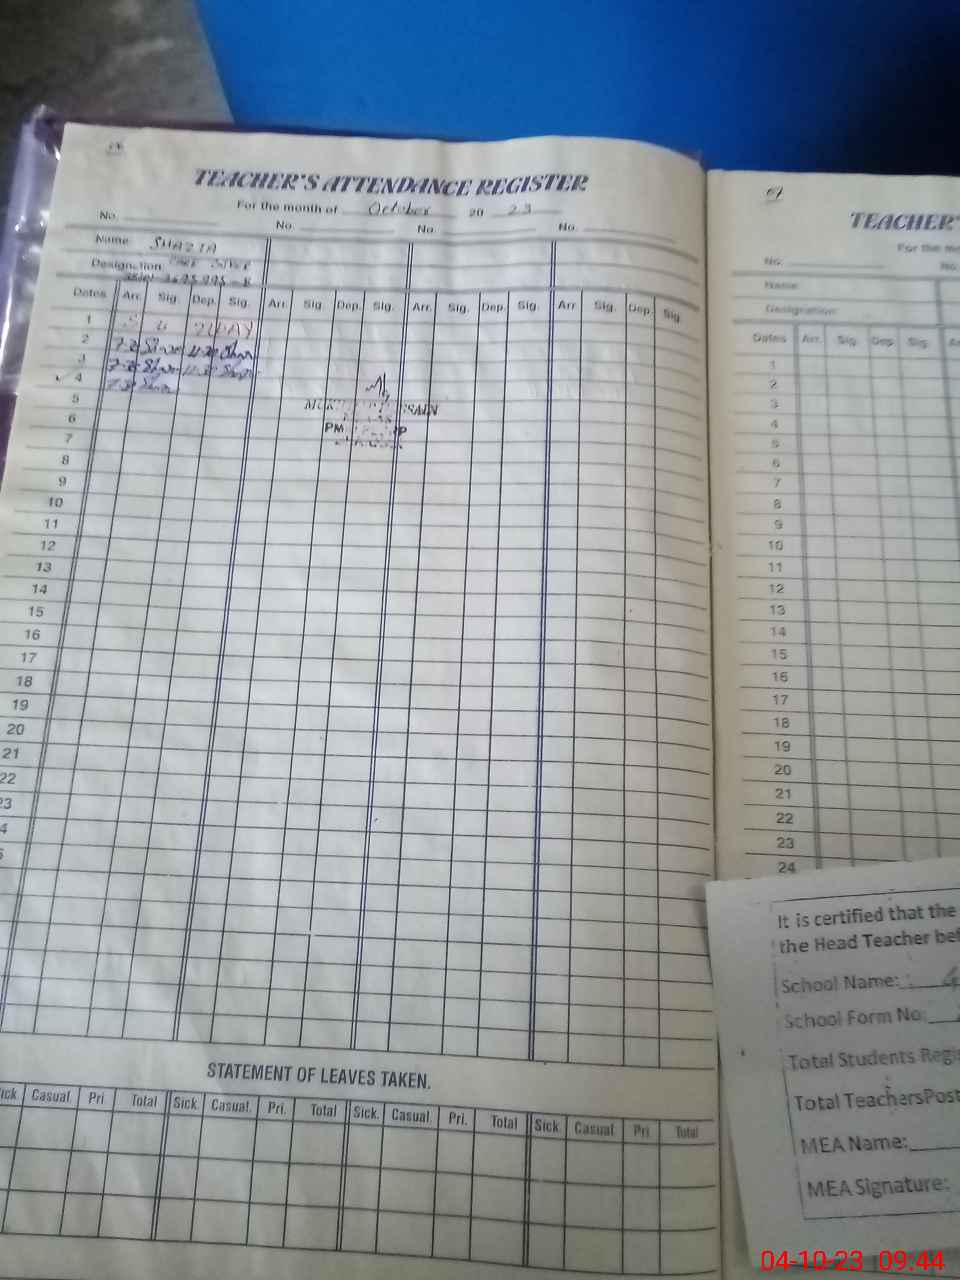 TEACHER'S ATTENDANCE REGISTER
For the month of October 20 23
No. No. No. No.
Name SHAZIA
Designation
Dates Arr. Sig. Dep. Sig. Arr. Sig. Dep. Sig. Arr. Sig. Dep. Sig. Arr Sig. Dep. Sig.
1 S U N DAY
2
3
4
5
6 PM
7
8
9
10
11
12
13
14
15
16
17
18
19
20
21
22
23
4
5
STATEMENT OF LEAVES TAKEN.
Sick Casual. Pri Total Sick. Casual. Pri. Total Sick. Casual. Pri. Total Sick. Casual Pri Total
TEACHER'
For the mo
No. No.
Name
Designation
Dates Arr. Sig. Dep. Sig.
1
2
3
4
5
6
7
8
9
10
11
12
13
14
15
16
17
18
19
20
21
22
23
24
It is certified that the
the Head Teacher bef
School Name:
School Form No:
Total Students Regi
Total TeachersPost
MEA Name:
MEA Signature:
04-10-23 09:44